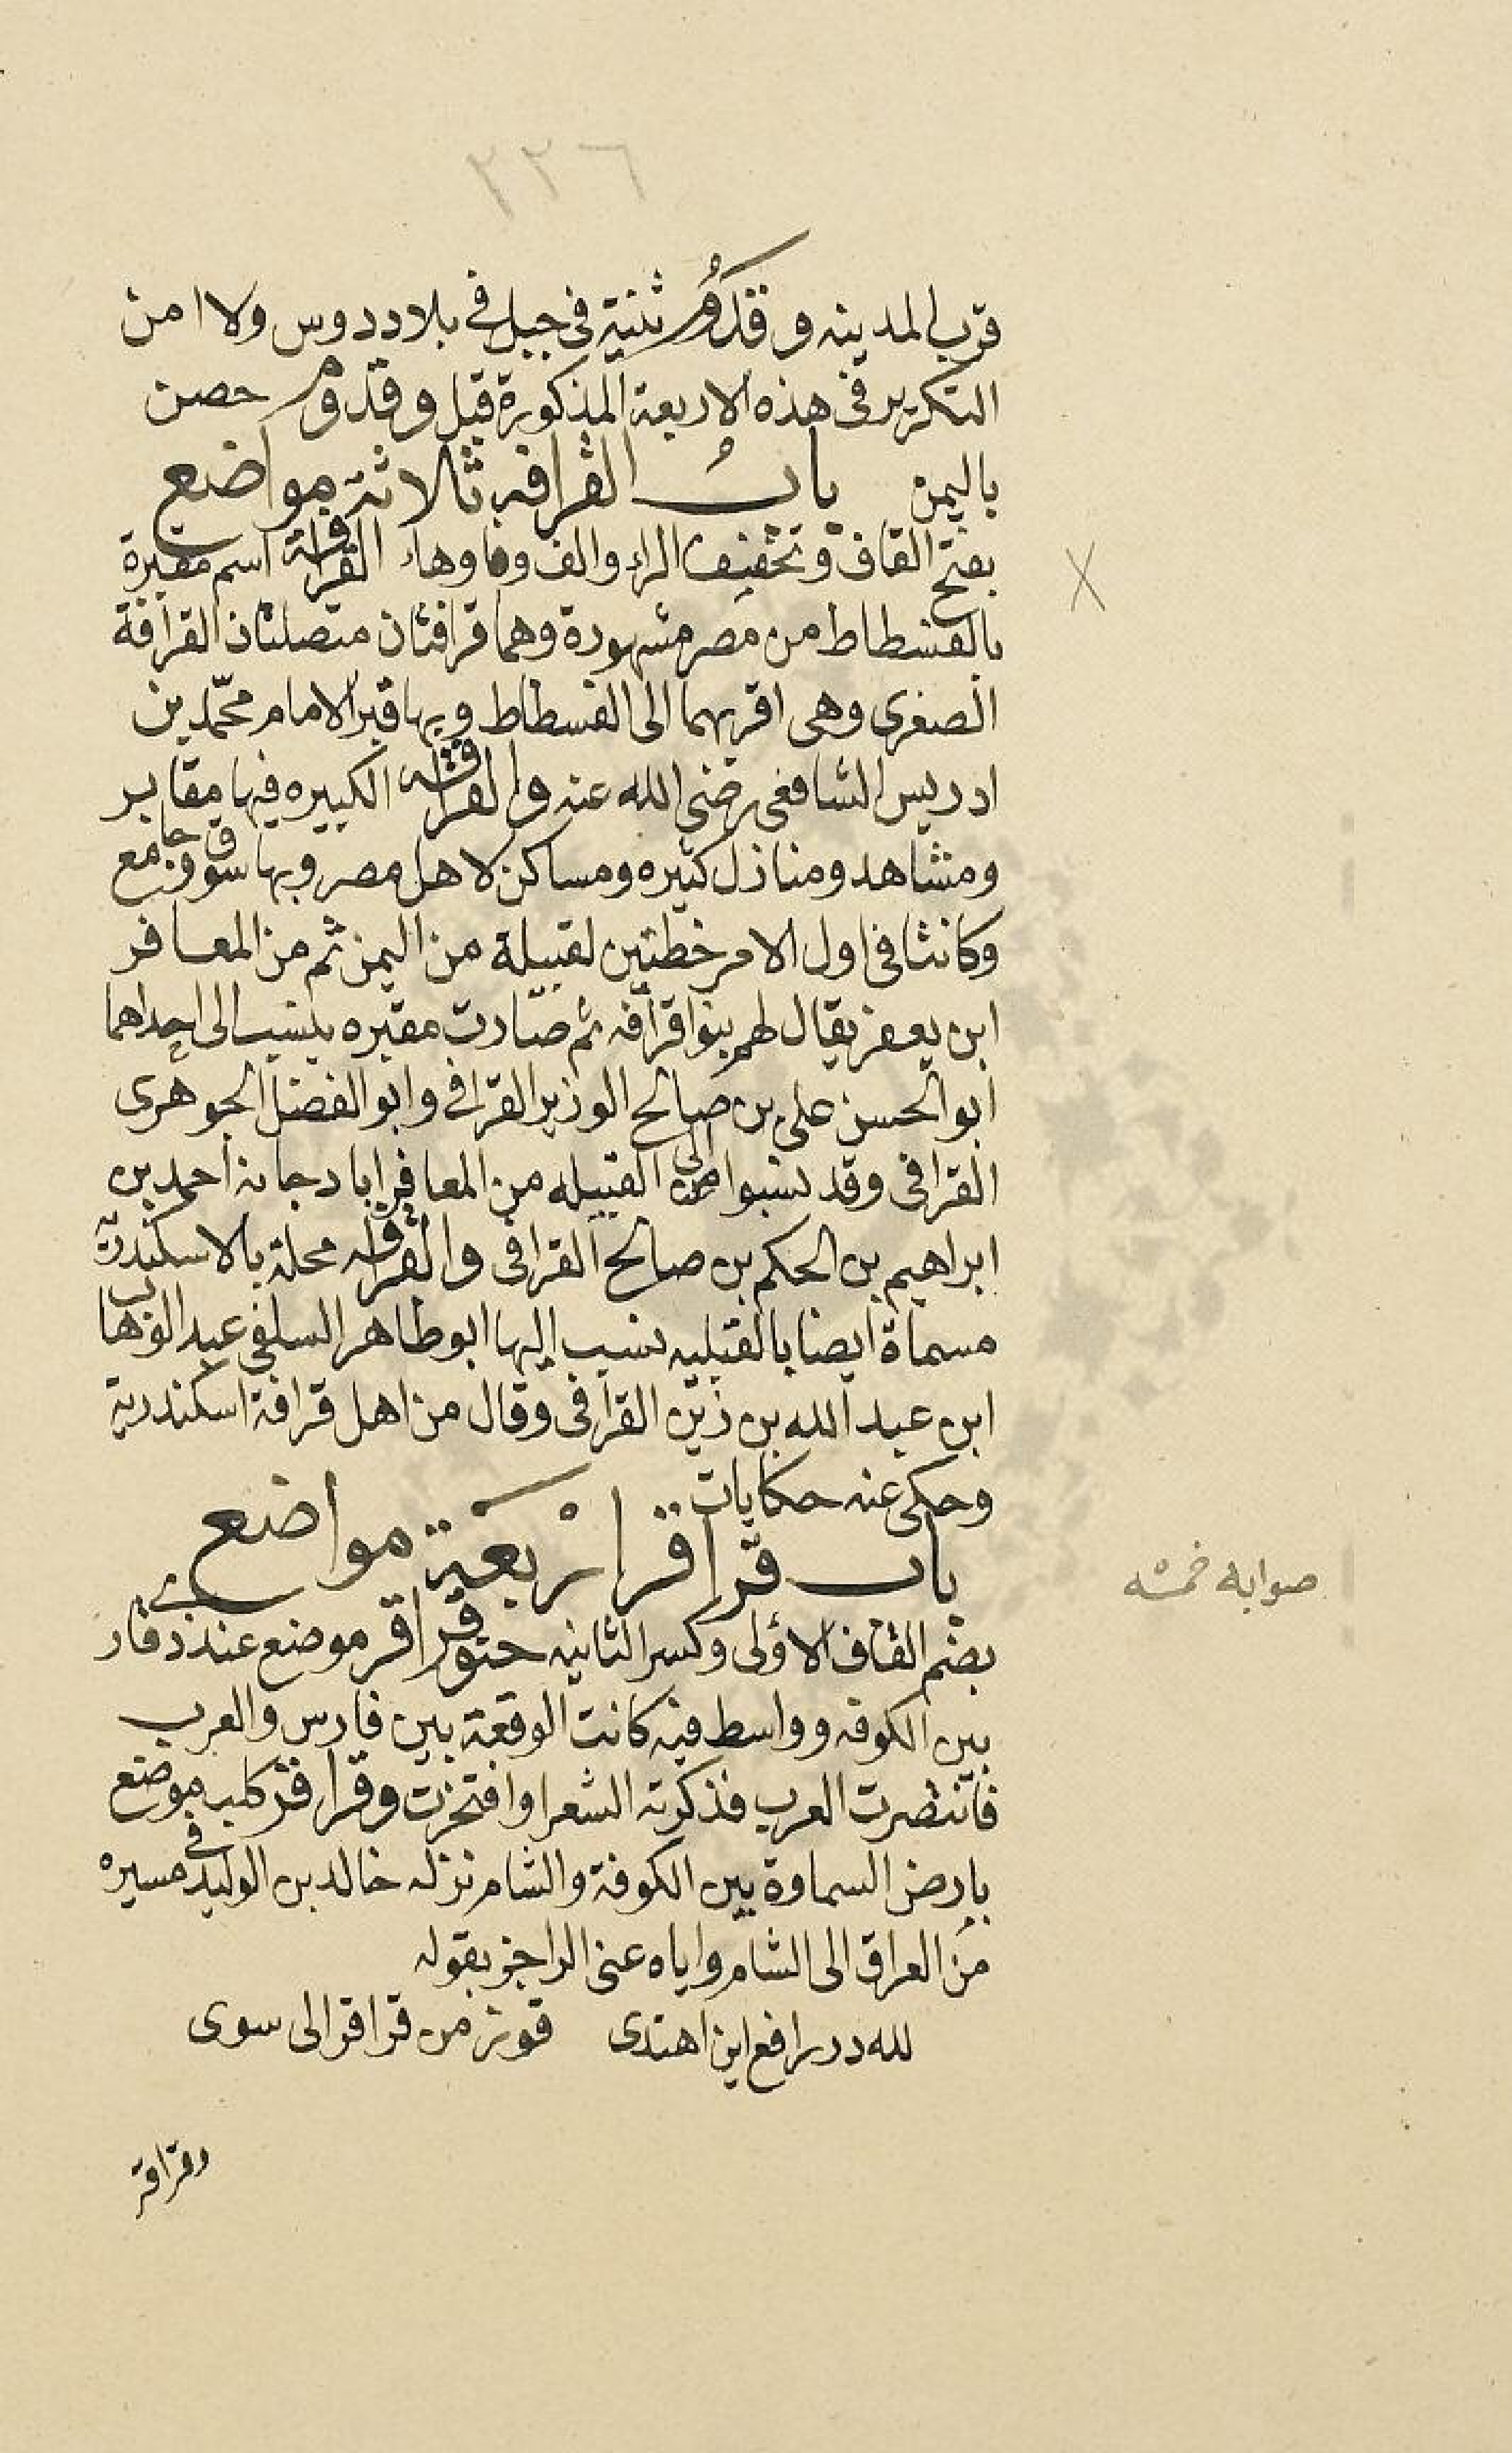 ٢٢٦
قرب المدينه وقدوم ثنية فى جبل فى بلاد دوس ولا امن
التكرير فى هذه الاربعة المذكورة قبل وقدوم حصن
باليمن باب القرافه ثلاثة مواضع
بفتح القاف وتخفيف الراء والف وفا وهاء القرافة اسم مقبرة
بالفسطاط من مصر مشهورة وهما قرافتان متصلتان القرافة
الصغرى وهى اقربهما الى الفسطاط وبها قبر الامام محمّد بن
ادريس الشافعى رضى الله عنه والقرافه الكبيره فيها مقابر
ومشاهد ومنازل كثيره ومساكن لاهل مصر وبها سوق وجامع
وكانتا فى اول الامر خطتين لقبيلة من اليمن ثم من المعافر
ابن يعفر يقال لهم بنوا قرافه ثم صارت مقبره ينسب الى احداهما
ابو الحسن على بن صالح الوزير القرافى وابو الفضل الجوهرى
القرافى وقد نسبوا الى القبيله من المعافر ابا دجانة احمد بن
ابراهيم بن الحكم بن صالح القرافى والقرافه محلة بالاسكندرية
مسماة ايضا بالقبليه نسب اليها ابو طاهر السلفى عبد الوهاب
ابن عبد الله بن زين القرافى وقال من اهل قرافة اسكندرية
وحكى عنه حكايات
باب قراقر اربعة مواضع
بضم القاف الاولى وكسر الثانيه حنو قراقر موضع عند ذى قار
بين الكوفه وواسط فيه كانت الوقعة بين فارس والعرب
فانتصرت العرب فذكرته الشعرا وافتخرت وقراقر كلب موضع
بارض السماوة بين الكوفة والشام نزله خالد بن الوليد فى مسيره
من العراق الى الشام واياه عنى الراجز بقوله
لله در رافع اين اهتدى فوز من قراقر الى سوى
وقراقر
صوابه خمسة